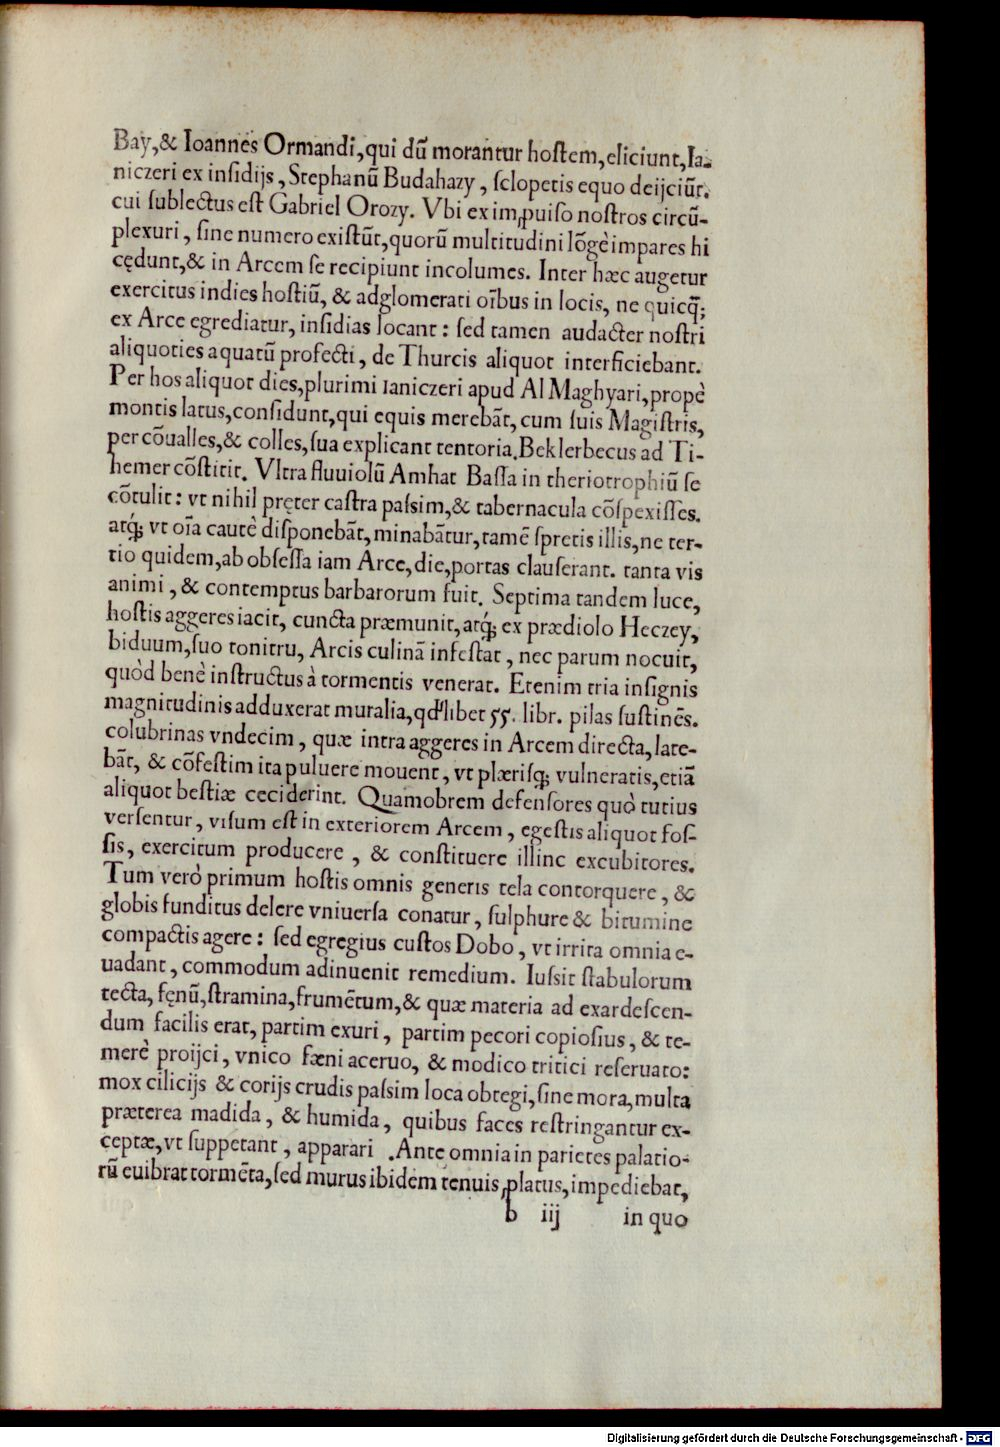 Bay,& Ioannes Ormandi,qui dū morantur hoſtem,eliciunt,Ia-
niczeri ex inſidijs, Stephanū Budahazy, ſclopetis equo deijciūt.
cui ſublectus eſt Gabriel Orozy. Vbi ex improuiſo noſtros circū-
plexuri, ſine numero exiſtūt,quorū multitudini lōgè impares hi
cędunt,& in Arcem ſe recipiunt incolumes. Inter hæc augetur
exercitus indies hoſtiū, & adglomerati oībus in locis, ne quicq̃;
ex Arce egrediatur, inſidias locant: ſed tamen audacter noſtri
aliquoties aquatū profecti, de Thurcis aliquot interficiebant.
Per hos aliquot dies,plurimi Ianiczeri apud Al Maghyari,propè
montis latus,conſidunt,qui equis merebāt, cum ſuis Magiſtris,
per cōualles,& colles,ſua explicant tentoria.Beklerbecus ad Ti-
hemer cōſtitit. Vltra fluuiolū Amhat Baſſa in theriotrophiū ſe
cōtulit: vt nihil pręter caſtra paſsim,& tabernacula cōſpexiſſes.
atq́; vt oīa cautè diſponebāt,minabātur,tamē ſpretis illis,ne ter-
tio quidem,ab obſeſſa iam Arce,die,portas clauſerant. tanta vis
animi, & contemptus barbarorum fuit. Septima tandem luce,
hoſtis aggeres iacit, cuncta præmunit,atq́; ex prædiolo Heczey,
biduum,ſuo tonitru, Arcis culinā infeſtat, nec parum nocuit,
quòd benè inſtructus à tormentis venerat. Etenim tria inſignis
magnitudinis adduxerat muralia,qd'libet 55. libr. pilas ſuſtinēs.
colubrinas vndecim, quæ intra aggeres in Arcem directa, late-
bāt, & cōfeſtim ita puluere mouent, vt plæriſq; vulneratis,etiā
aliquot beſtiæ ceciderint. Quamobrem defenſores quò tutius
verſentur, viſum eſt in exteriorem Arcem, egeſtis aliquot foſ-
ſis, exercitum producere, & conſtituere illinc excubitores.
Tum verò primum hoſtis omnis generis tela contorquere, &
globis funditus delere vniuerſa conatur, ſulphure & bitumine
compactis agere: ſed egregius cuſtos Dobo, vt irrita omnia e-
uadant, commodum adinuenit remedium. Iuſsit ſtabulorum
tecta, fęnū,ſtramina,frumētum,& quæ materia ad exardeſcen-
dum facilis erat, partim exuri, partim pecori copioſius, & te-
merè proijci, vnico fæni aceruo, & modico tritici reſeruato:
mox cilicijs & corijs crudis paſsim loca obtegi,ſine mora,multa
præterea madida, & humida, quibus faces reſtringantur ex-
ceptæ,vt ſuppetant, apparari .Ante omnia in parietes palatio-
rū euibrat tormēta,ſed murus ibidem tenuis,platus,impediebat,
b iij in quo
Digitalisierung gefördert durch die Deutsche Forschungsgemeinschaft - DFG